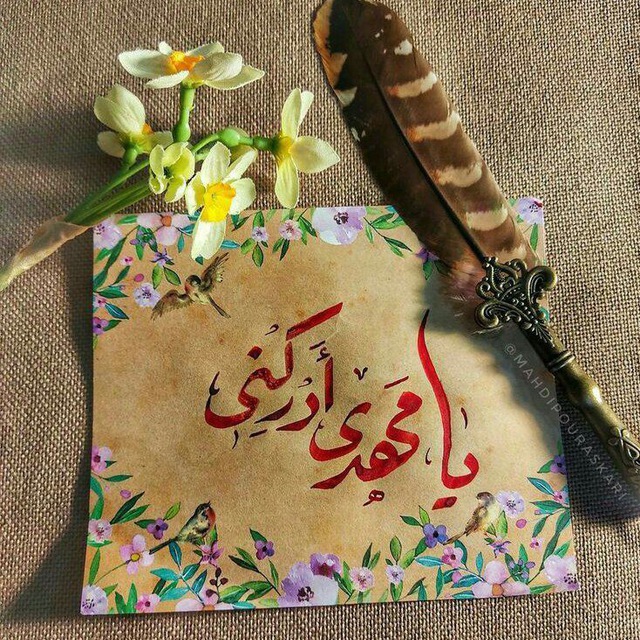 يا مَهدى أَدرِكْنِي
@MAHDIPOURASKARI